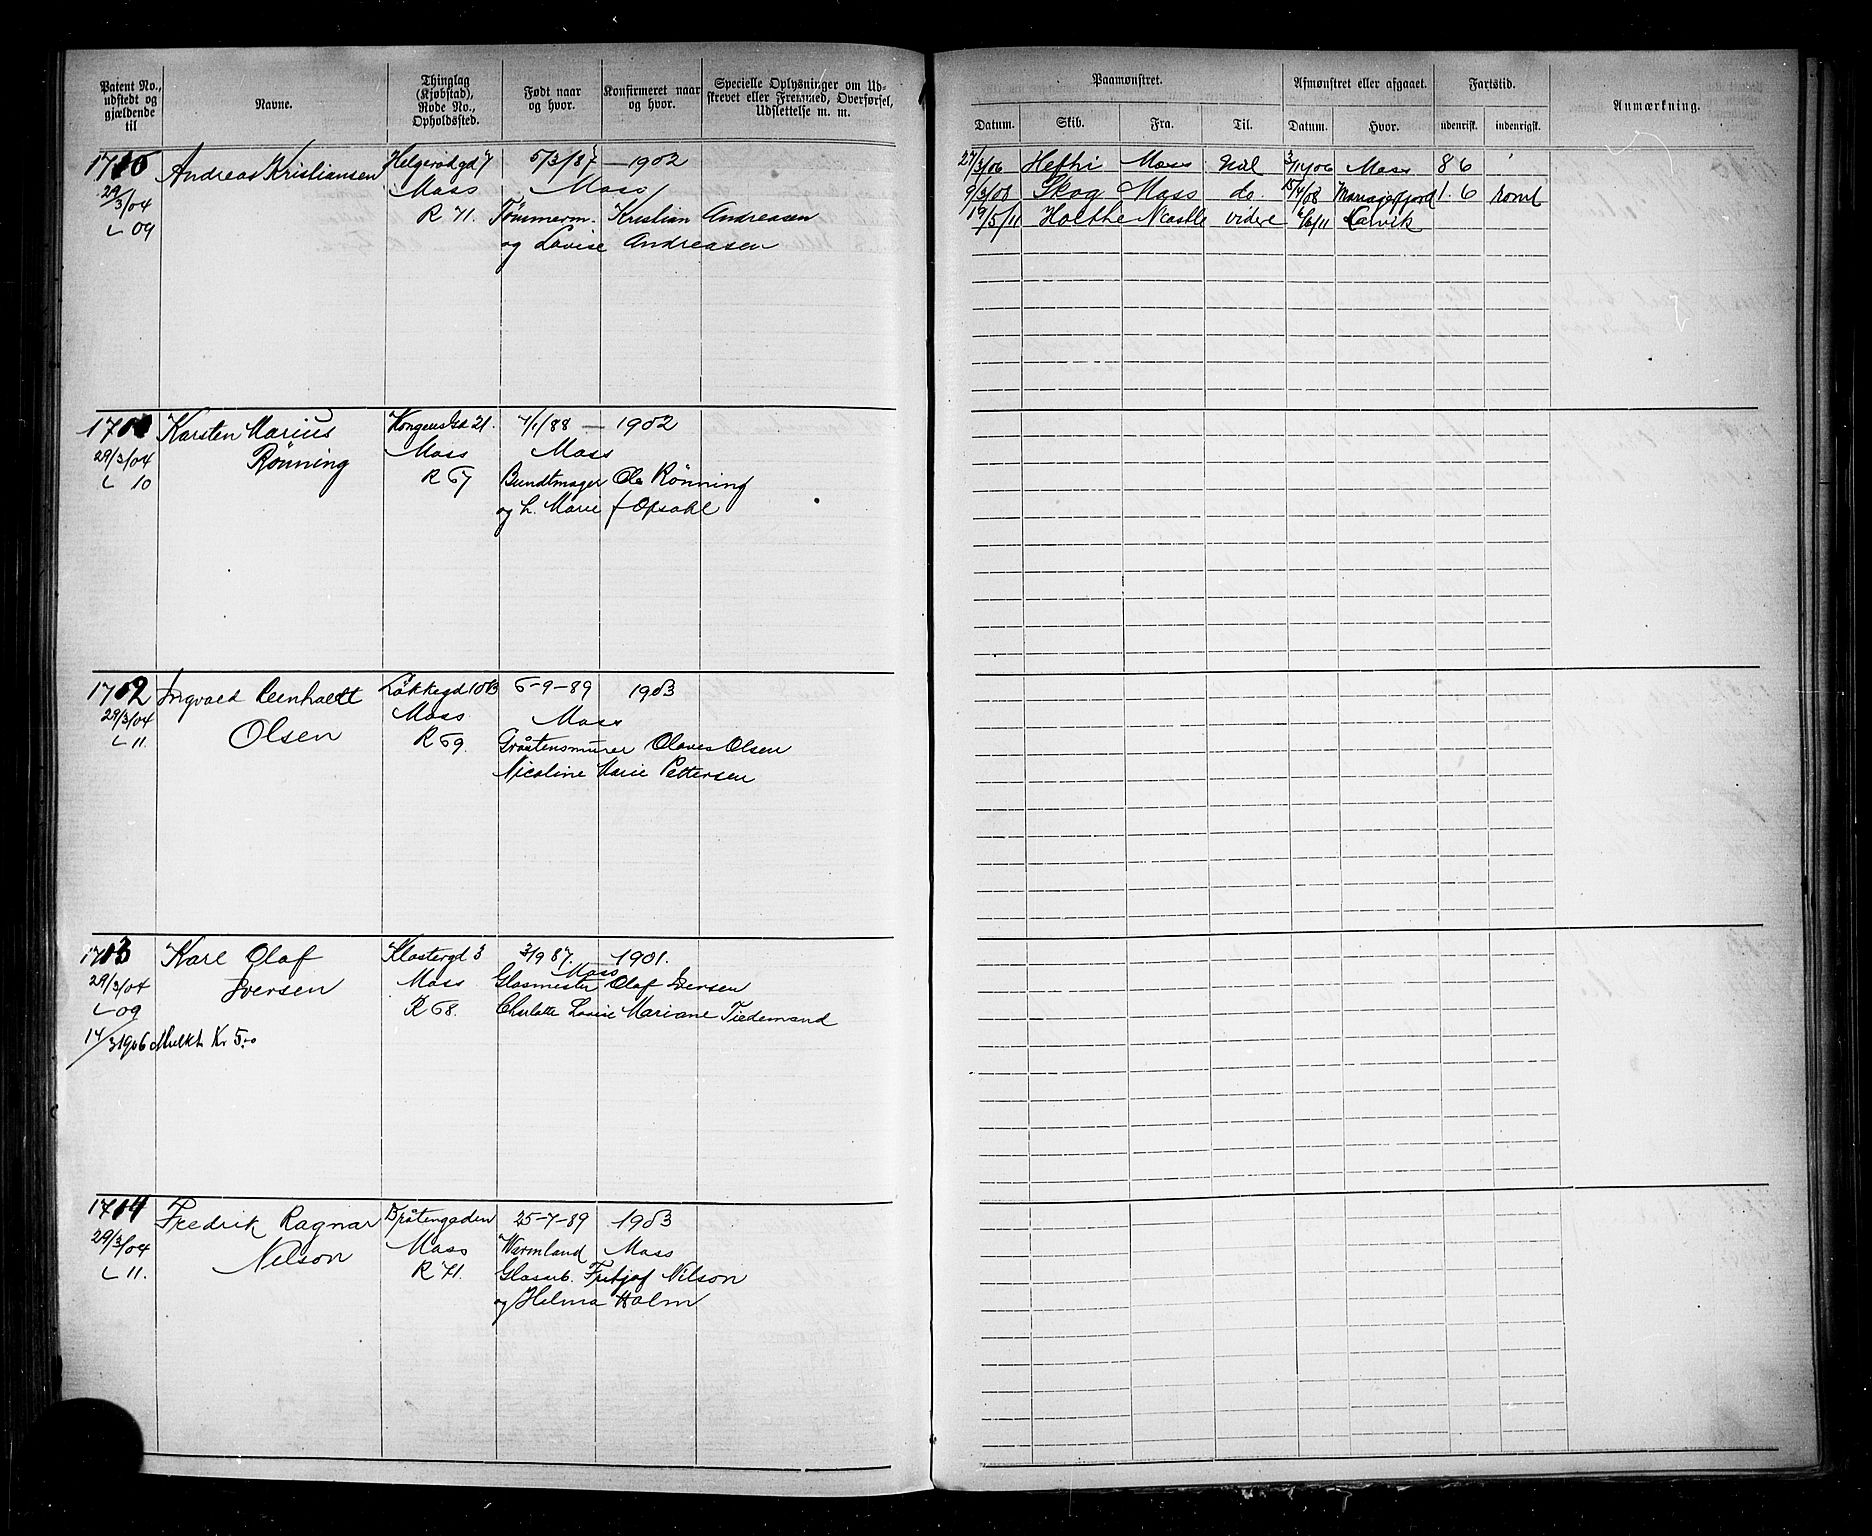 Patent No., udstedt og gjældende til
Navne.
Thinglag (Kjøbstad), Rode No., Opholdssted.
Født naar og hvor.
Konfirmeret naar og hvor.
Specielle Oplysninger om Udskrevet eller Fremmed, Overførsel, Udslettelse m. m.
Paamønstret.
Datum. Skib. Fra. Til.
Afmønstret eller afgaaet.
Datum. Hvor.
Fartstid.
udenrisk. indenrigsk.
Anmærkning.
Andreas Kristiansen Helgerødgd 7 5/3/87 — 1902
29/3/04 Moss Moss
R 71. Tømmerm. Kristian Andreasen
L 09 og Lovise Andreasen
27/3/06 Hefhi Moss 3/11/06 Moss 8 6
9/3/08 Skog Moss do. 15/4/08 Mariagerfjord 1. 6
19/5/11 Holthe Ncastle videre Larvik
Karsten Marius Kongensgd 21. 7/1/88 — 1902
29/3/04 Rønning Moss Moss
L 10 R 67 Bundtmager Ole Rønning
og h. Marie f Opsahl
1712 Ingvald Leenhardt Løkkegd 10B 6-9-89 1903
29/3/04 Olsen Moss Moss
L 11. R 69. Gråstensmurer Olaves Olsen
Nicoline Marie Pettersen
1713 Karl Olaf Klostergd 3 3/9 87. 1901.
Moss
29/3/04 Iversen Moss Glasmester Olaf Iversen
L 09 R 68. Charlotte Lovise Mariane Tiedemand
14/3 1906 Mulkt Kr 5.00
1714 Fredrik Ragnar Bråtengaden 25-7-89 1903
29/3/04 Nilson Moss Warmland Moss
L 11. R 71. Glasarb. Fritjof Nilson
og Helma Holm